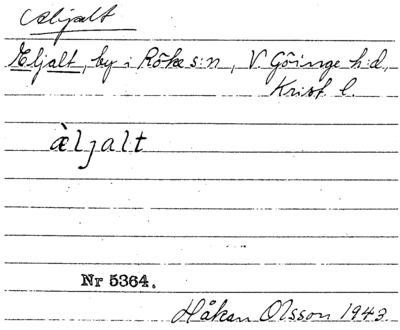 Äljalt
Eljalt, by i Röke s:n, V. Göinge h:d,
Krist. l.
àljalt
Nr 5364.
Håkan Olsson 1943.